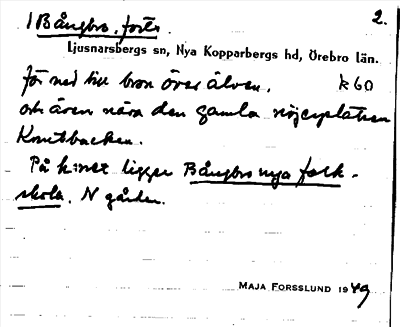 1 Bångbro, forts. 2.
Ljusnarsbergs sn, Nya Kopparbergs hd, Örebro län.
för ned till bron över älven. k 60
och även nära den gamla nöjesplatsen
Knuttbacken.
På k:net ligger Bångbro nya folk-
skola. N gården.
MAJA FORSSLUND 1949